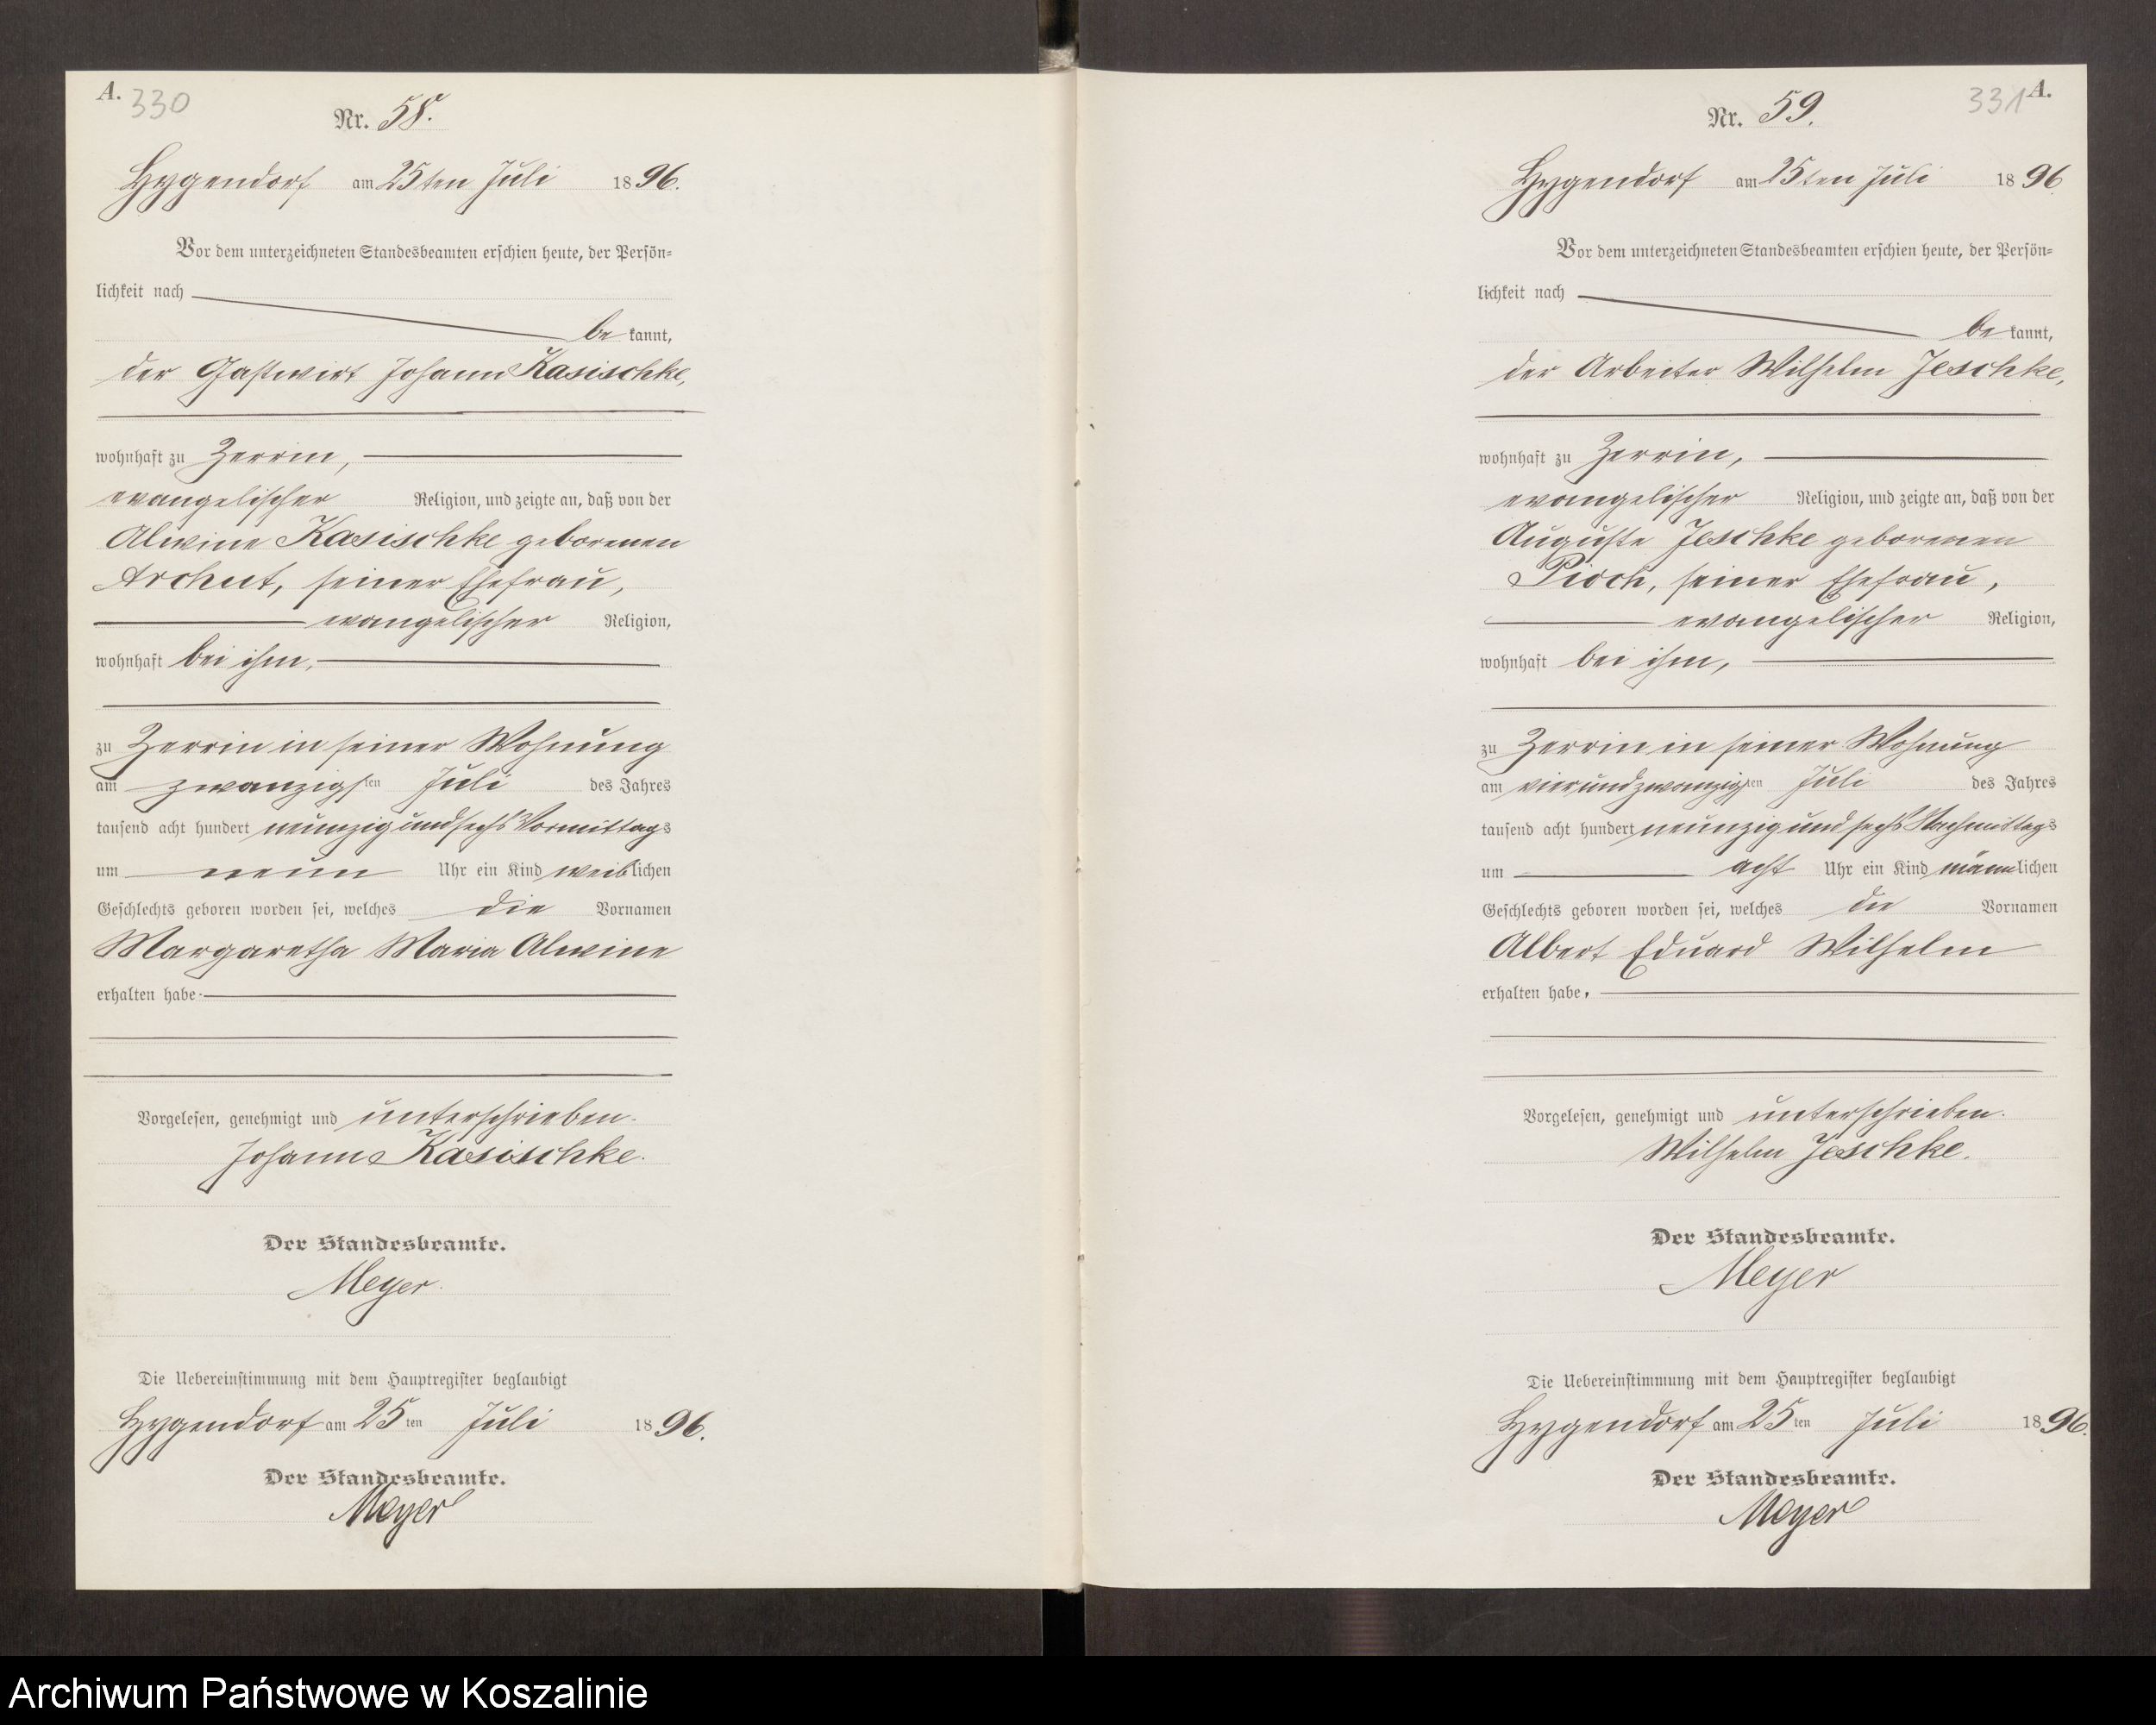 A. 330
Nr. 58.
Hygendorf am 25ten Juli 1896.
Vor dem unterzeichneten Standesbeamten erschien heute, der Persön-
lichkeit nach
be kannt,
der Gastwirt Johann Kasischke,
wohnhaft zu Zerrin,
evangelischer Religion, und zeigte an, daß von der
Alwine Kasischke geborenen
Archut, seiner Ehefrau,
evangelischer Religion,
wohnhaft bei ihm,
zu Zerrin in seiner Wohnung
am zwanzigsten Juli des Jahres
tausend acht hundert neunzig und sechs Vormittags
um neun Uhr ein Kind weiblichen
Geschlechts geboren worden sei, welches die Vornamen
Margaretha Maria Alwine
erhalten habe.
Vorgelesen, genehmigt und unterschrieben.
Johann Kasischke.
Der Standesbeamte.
Meyer.
Die Uebereinstimmung mit dem Hauptregister beglaubigt
Hygendorf am 25ten Juli 1896.
Der Standesbeamte.
Meyer
331 A.
Nr. 59.
Hygendorf am 25ten Juli 1896
Vor dem unterzeichneten Standesbeamten erschien heute, der Persön-
lichkeit nach
be kannt,
der Arbeiter Wilhelm Jeschke,
wohnhaft zu Zerrin,
evangelischer Religion, und zeigte an, daß von der
Auguste Jeschke geborenen
Pioch, seiner Ehefrau,
evangelischer Religion,
wohnhaft bei ihm,
zu Zerrin in seiner Wohnung
am vierundzwanzigsten Juli des Jahres
tausend acht hundert neunzig und sechs Nachmittags
um acht Uhr ein Kind männlichen
Geschlechts geboren worden sei, welches die Vornamen
Albert Eduard Wilhelm
erhalten habe.
Vorgelesen, genehmigt und unterschrieben.
Wilhelm Jeschke.
Der Standesbeamte.
Meyer
Die Uebereinstimmung mit dem Hauptregister beglaubigt
Hygendorf am 25ten Juli 1896.
Der Standesbeamte.
Meyer
Archiwum Państwowe w Koszalinie